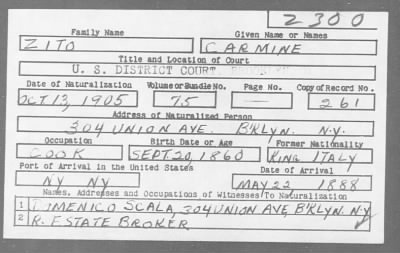 Z300
Family Name Given Name or Names
ZITO CARMINE
Title and Location of Court
U. S. DISTRICT COURT,
Date of Naturalization Volume or Bundle No. Page No. Copy of Record No.
OCT 13, 1905 75 — 261
Address of Naturalized Person
304 UNION AVE. B'KLYN. N.Y.
Occupation Birth Date or Age Former Nationality
COOK SEPT. 20, 1860 KING ITALY
Port of Arrival in the United States Date of Arrival
NY NY MAY 22 1888
Names, Addresses and Occupations of Witnesses To Naturalization
1 DOMENICO SCALA, 304 UNION AVE, B'KLYN. N.Y
2 R. ESTATE BROKER